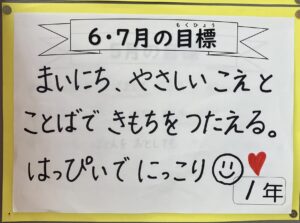 6・7月の目標
もくひょう
まいにち、やさしい こえ と
ことばで きもちを つたえる。
はっぴいで にっこり
1年